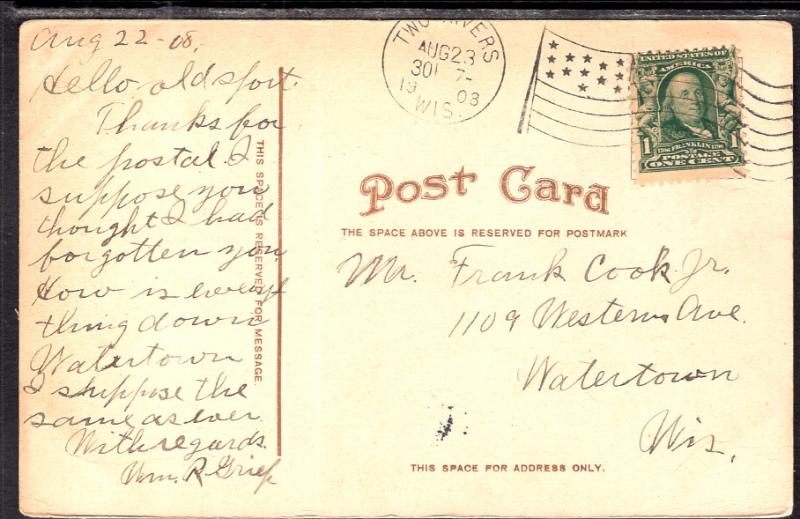 Aug 22-08.
Hello old sport.
Thanks for
the postal. I
suppose you
thought I had
forgotten you.
How is every
thing down
Watertown
I suppose the
same as ever.
With regards.
Wm. R.
THIS SPACE IS RESERVED FOR MESSAGE.
TWO RIVERS
AUG 23
7-
19 08
WIS.
UNITED STATES OF
AMERICA
1 FRANKLIN 1
POSTAGE
ONE CENT
Post Card
THE SPACE ABOVE IS RESERVED FOR POSTMARK
Mr. Frank Cook Jr.
1109 Western Ave.
Watertown
Wis.
THIS SPACE FOR ADDRESS ONLY.